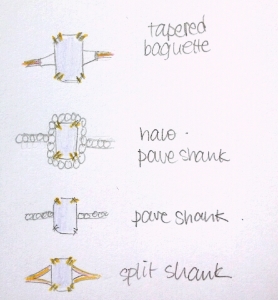 tapered
baguette
halo.
pave shank
pave shank.
split shank